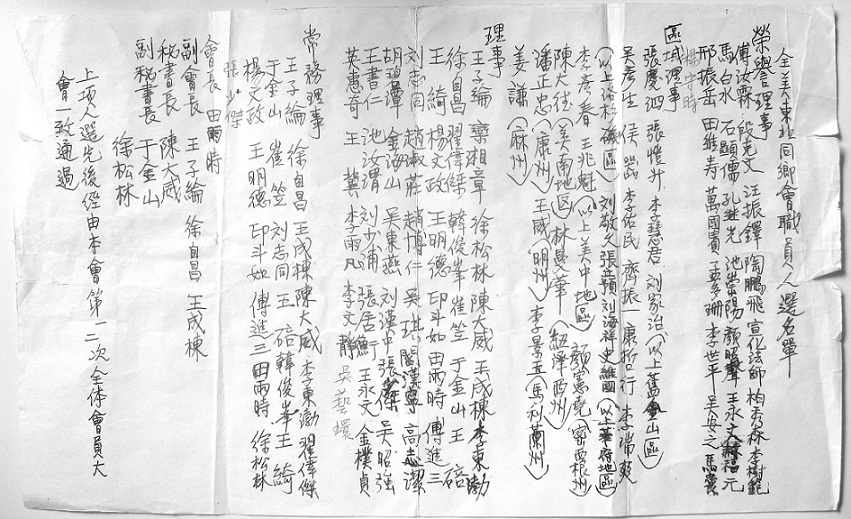 全美東北同鄉會職員人選名單
榮譽理事
傅汝霖 段克文 汪振鐸 陶鵬飛 宣化法師 柏秀林 李樹範
馬白水 石顯儒 孔繼光 池崇陽 顏昭 王永文 福元
邢振岳 田維壽 萬國賓 孟 珊 李世平 吳安之 馬
楊守時
區域理事
張慶泗 張愷升 李慧君 刘家治（以上舊金山區）
吳彥生 侯 李佑民 齊振一 康哲行 李瑞爽
（以上洛杉磯區）刘敬久 張 刘海祥 史維國（以上華府地區）
李彥春 王兆魁（以上美中地區）顏憲堯（密西根州）
陳大任（美南地區）林曼華（紐澤西州）
潘正忠（康州）王威（明州）李景五（馬利蘭州）
姜謙（麻州）
理事
王子綸 欒湘章 徐松林 陳大威 王成棟 李東渤
徐自昌 翟偉傑 韓俊峯 崔笠 于金山 王碚
王綺 楊文政 王明德 印斗如 田雨時 傅進三
刘志同 趙淑莊 趙 吳琪 閻漢寧 高志潔
胡 金海山 吳東燕 刘漢中 張 傑 吳昭強
王書仁 池汝渭 刘少浦 張居 王永文 金樸貞
英惠奇 王冀 李雨凡 李文靜 吳藝環
常務理事
王子綸 徐自昌 王成棟 陳大威 李東渤 翟偉傑
于金山 崔笠 刘志同 王碚 韓俊峯 王綺
楊文政 王明德 印斗如 傅進三 田雨時 徐松林
張 傑
會長 田雨時
副會長 王子綸 徐自昌 王成棟
秘書長 陳大威
副秘書長 于金山
徐松林
上項人選先後經由本會第一二次全体會員大
會一致通過